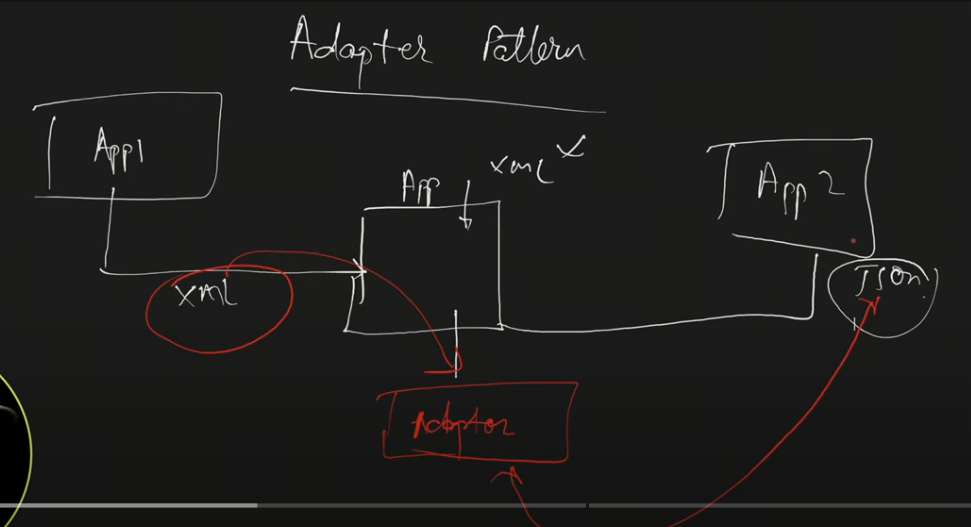 Adapter Pattern
App1
App
xml x
App 2
xml
Json
Adaptor